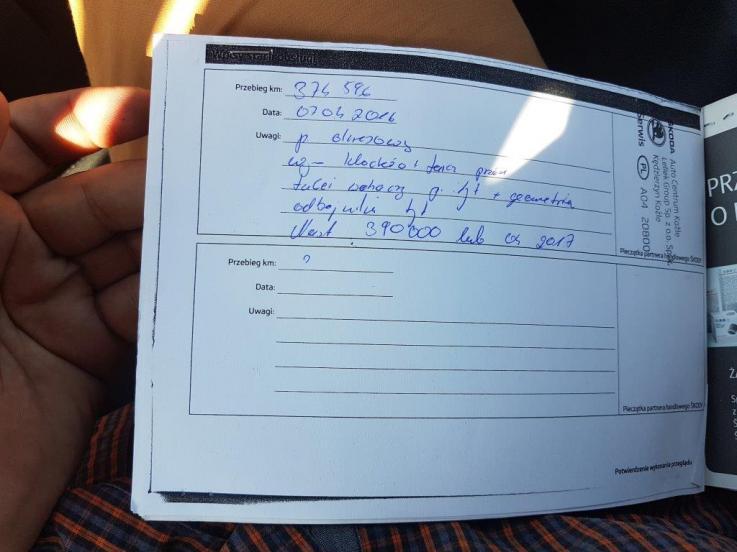 Przebieg km: 374 596
Data: 07 04 2016
Uwagi: p. okresowy
wym klocków i tarcz przód
tulei wahaczy g. tył + geometria
odbojniki tył
Nast 390 000 lub 04 2017
Pieczątka partnera handlowego ŠKODY
ŠKODA
Auto Centrum Koźle
Lellek Group Sp. z o.o. Sp.k.
Kędzierzyn Koźle
Serwis PL A04 20800
Przebieg km:
Data:
Uwagi:
Pieczątka partnera handlowego ŠKODY
Potwierdzenie wykonania przeglądu
PRZ
O